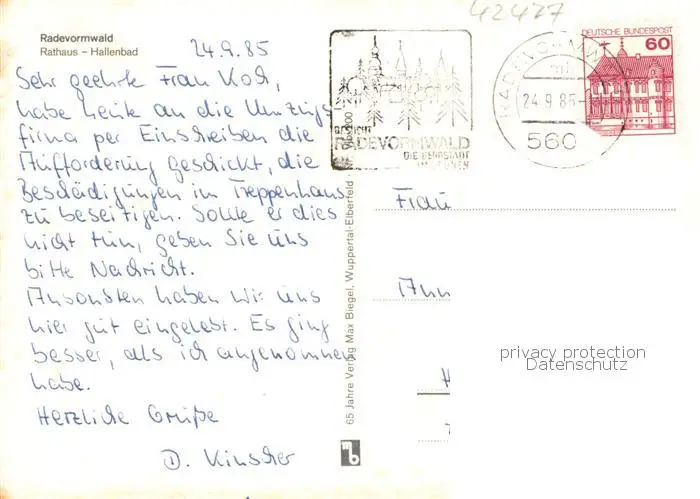 42477
Radevormwald
Rathaus – Hallenbad
24.9.85
Sehr geehrte Frau Koch,
habe heute an die Umzugs
firma per Einschreiben die
Aufforderung geschickt, die
Beschädigungen im Treppenhaus
zu beseitigen. Sollte er dies
nicht tun, geben Sie uns
bitte Nachricht.
Ansonsten haben wir uns
hier gut eingelebt. Es ging
besser, als ich angenommen
habe.
Herzliche Grüße
D. Kinscher
65 Jahre Verlag Max Biegel, Wuppertal-Elberfeld
mb
RADEVORMWALD
DIE BERGSTADT
24.9.85
560
DEUTSCHE BUNDESPOST
60
Frau
privacy protection
Datenschutz